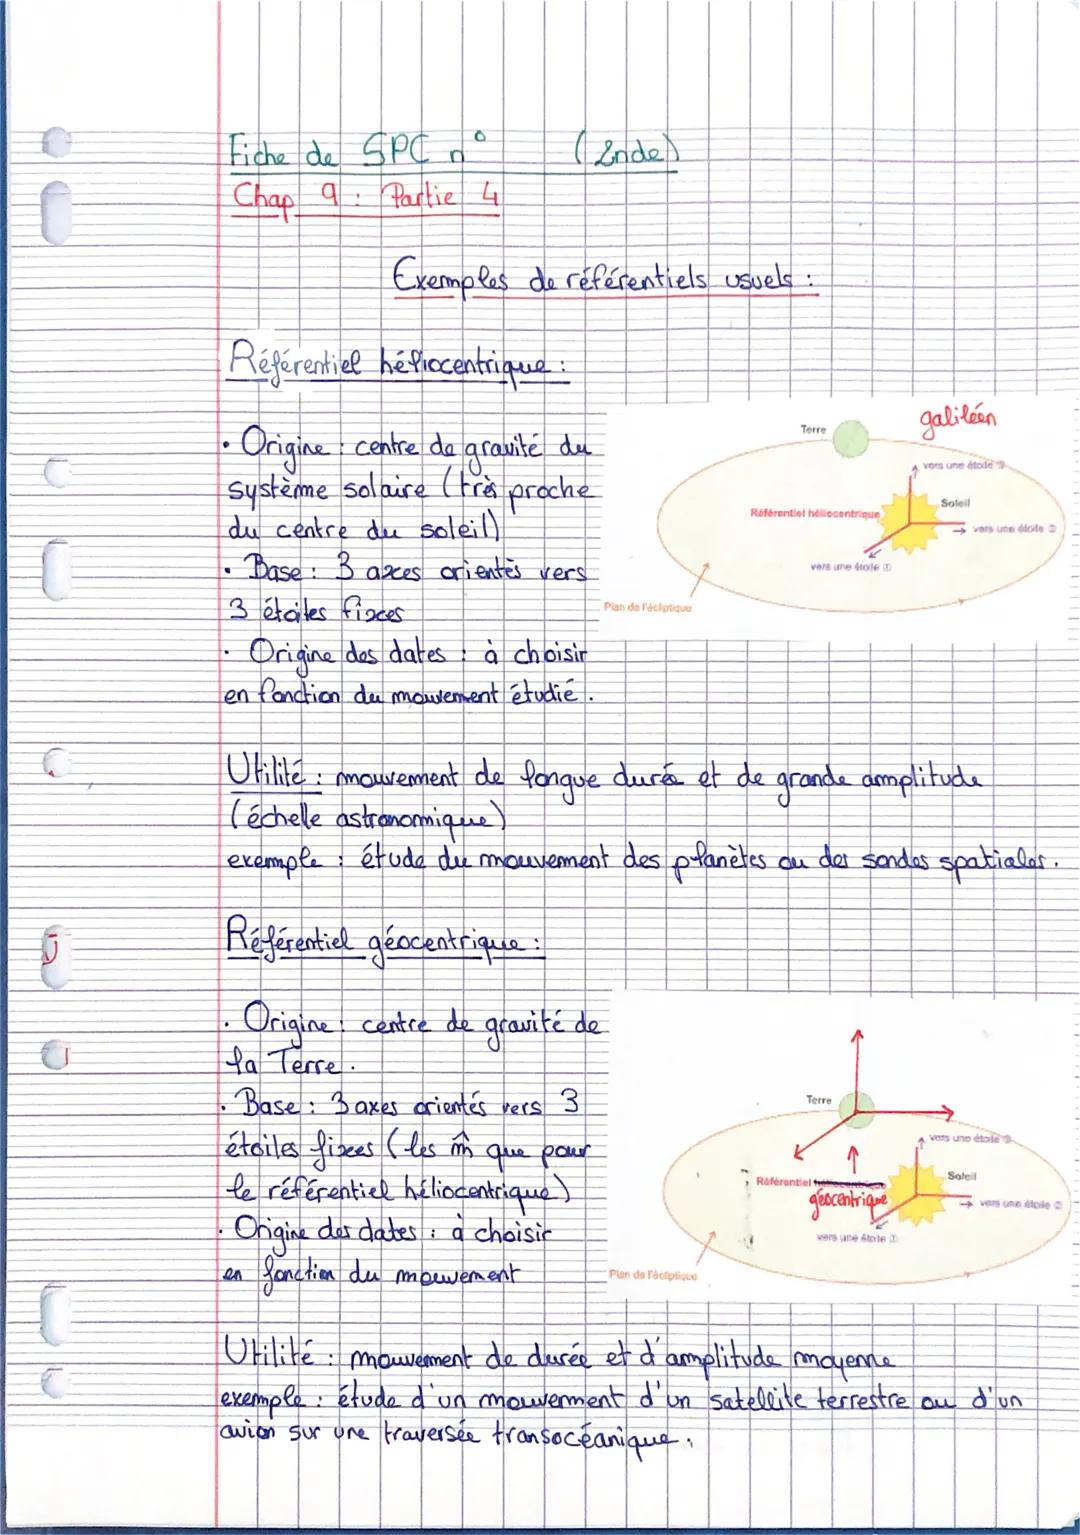 Fiche de SPC n° (2nde)
Chap 9 : Partie 4
Exemples de référentiels usuels :
Référentiel héliocentrique :
• Origine : centre de gravité du
système solaire (très proche
du centre du soleil)
• Base : 3 axes orientés vers
3 étoiles fixes
• Origine des dates : à choisir
en fonction du mouvement étudié.
galiléen
Terre
vers une étoile ③
Soleil
Référentiel héliocentrique
vers une étoile ②
vers une étoile ①
Plan de l'écliptique
Utilité : mouvement de longue durée et de grande amplitude
(échelle astronomique)
exemple : étude du mouvement des planètes ou des sondes spatiales.
Référentiel géocentrique :
• Origine : centre de gravité de
la Terre.
• Base : 3 axes orientés vers 3
étoiles fixes (les m̂ que pour
le référentiel héliocentrique)
• Origine des dates : à choisir
en fonction du mouvement
Terre
vers une étoile ③
Référentiel
Soleil
géocentrique
vers une étoile ②
vers une étoile ①
Plan de l'écliptique
Utilité : mouvement de durée et d'amplitude moyenne
exemple : étude d'un mouvement d'un satellite terrestre ou d'un
avion sur une traversée transocéanique.